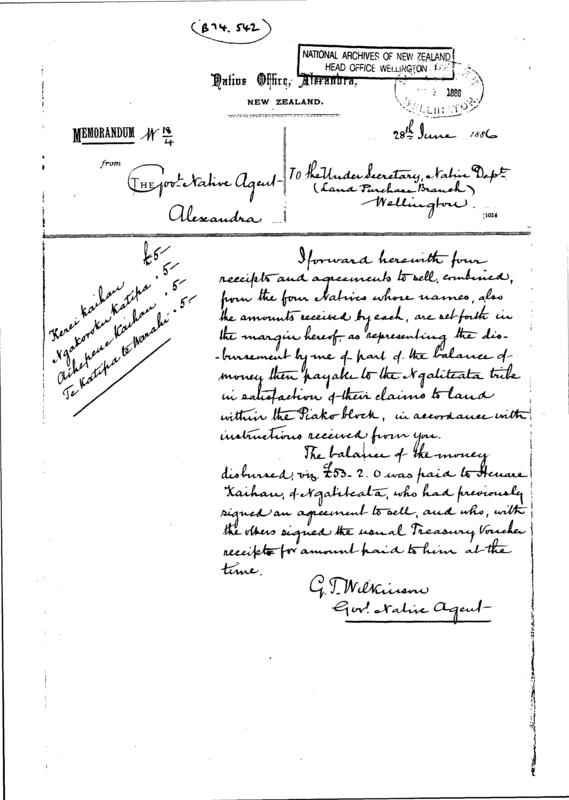 (B74.542)
NATIONAL ARCHIVES OF NEW ZEALAND
HEAD OFFICE WELLINGTON
Native Office, Alexandra,
NEW ZEALAND.
1886
WELLINGTON
MEMORANDUM W 18/4
28th June 1886
from
THE Govt. Native Agent
Alexandra
To the Under Secretary, Native Dept
(Land Purchase Branch)
Wellington
Kerei Kaihau £5-
Ngakoroku Katipa . 5-
Aihepene Kaihau . 5-
Te Katipa te Manahi . 5-
I forward herewith four
receipts and agreements to sell, combined,
from the four Natives whose names, also
the amounts received by each, are set forth in
the margin hereof, as representing the dis-
-bursement by me of part of the balance of
money then payable to the Ngatiteata tribe
in satisfaction of their claims to land
within the Piako block, in accordance with
instructions received from you.
The balance of the money
disbursed, viz £53-2.0 was paid to Henare
Kaihau, of Ngatiteata, who had previously
signed an agreement to sell, and who, with
the others signed the usual Treasury Voucher
receipts for amount paid to him at the
time.
G. T. Wilkinson
Govt. Native Agent